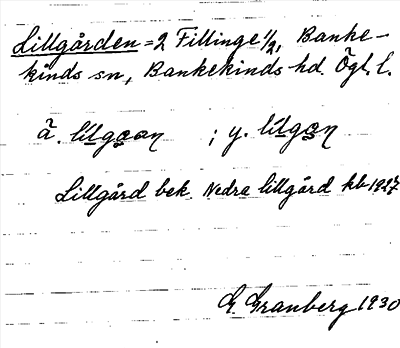 Lillgården = 2 Fillinge 1/2, Banke-
kinds sn, Bankekinds hd. Ögl. l.
ä. ; y.
Lillgård bek. Nedra lillgård kb 1927
G. Granberg 1930